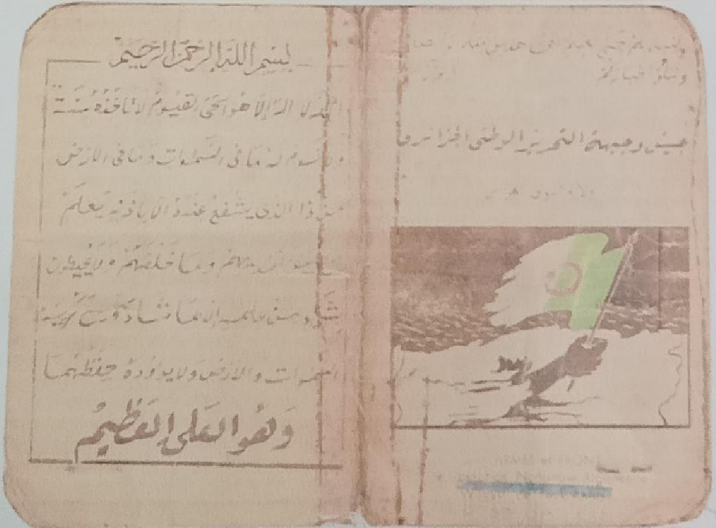 ونبلو اخباركم
جيش وجبهة التحرير الوطني الجزائري
بسم الله الرحمن الرحيم
الله لا اله الا هو الحي القيوم لا تاخذه سنة
ولا نوم له ما في السموات وما في الارض
من ذا الذي يشفع عنده الا باذنه يعلم
ما بين ايديهم وما خلفهم ولا يحيطون
بشيء من علمه الا بما شاء وسع كرسيه
السموات والارض ولا يؤوده حفظهما
وهو العلي العظيم